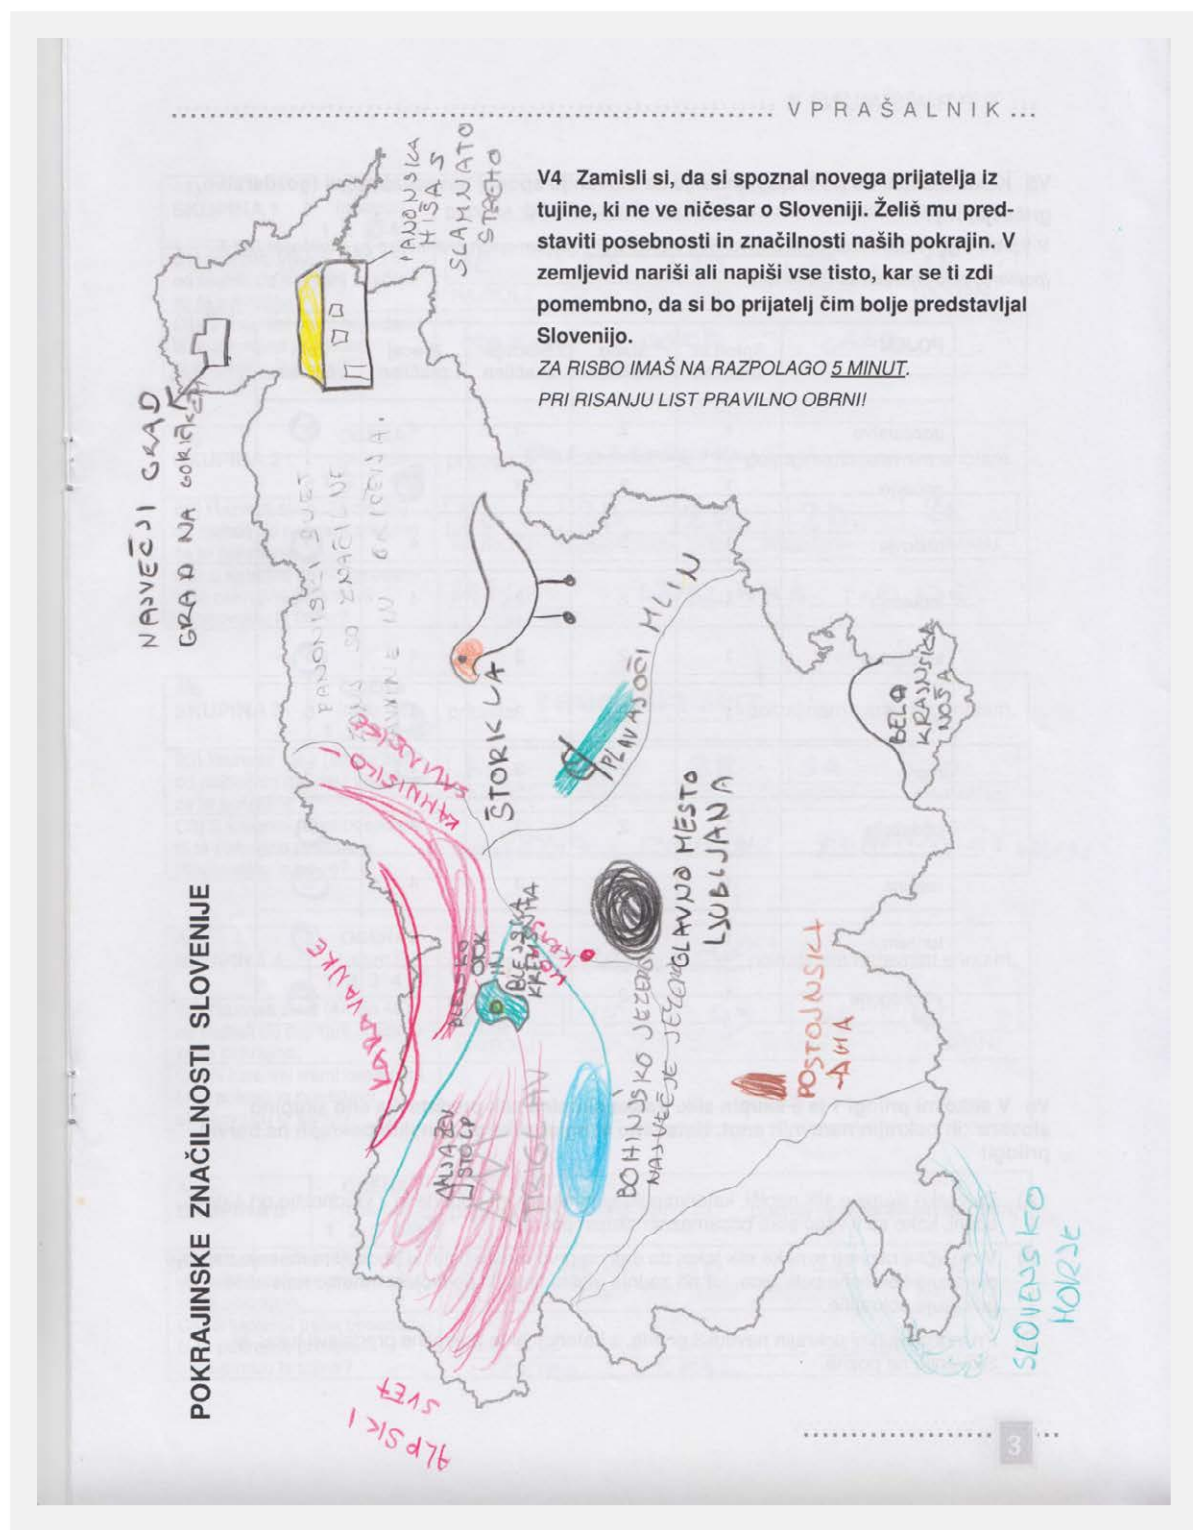 VPRAŠALNIK
V4 Zamisli si, da si spoznal novega prijatelja iz
tujine, ki ne ve ničesar o Sloveniji. Želiš mu pred-
staviti posebnosti in značilnosti naših pokrajin. V
zemljevid nariši ali napiši vse tisto, kar se ti zdi
pomembno, da si bo prijatelj čim bolje predstavljal
Slovenijo.
ZA RISBO IMAŠ NA RAZPOLAGO 5 MINUT.
PRI RISANJU LIST PRAVILNO OBRNI!
POKRAJINSKE ZNAČILNOSTI SLOVENIJE
NAJVEČJI GRAD
GRAD NA GORIČKEM
PANONSKA
HIŠA S
SLAMNATO
STREHO
PANONSKI SVET
ZANJ SO ZNAČILNE
RAVNINE IN GRIČEVJA.
ŠTORKLJA
PLAVAJOČI MLIN
BELA
KRAJNSKA
NOŠA
KAMNIŠKO-
SAVINJSKE
KARAVANKE
BLEJSKO
OTOK
IN
BLEJSKA
KREMŠNITA
KRANJ
GLAVNO MESTO
LJUBLJANA
ALJAŽEV
STOLP
TRIGLAV
BOHINJSKO JEZERO
NAJVEČJE JEZERO
POSTOJNSKA
JAMA
ALPSKI
SVET
SLOVENSKO
MORJE
3